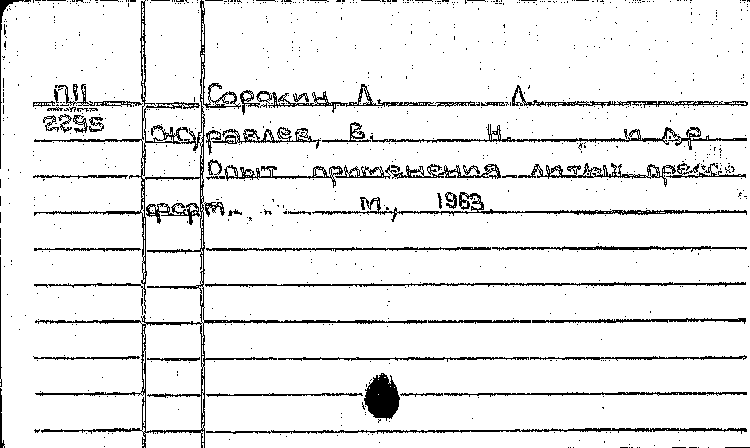 П11 Сорокин, Л. Л.
2295 Журавлев, В. Н. и др.
Опыт применения литых пресс-
форм. М., 1963